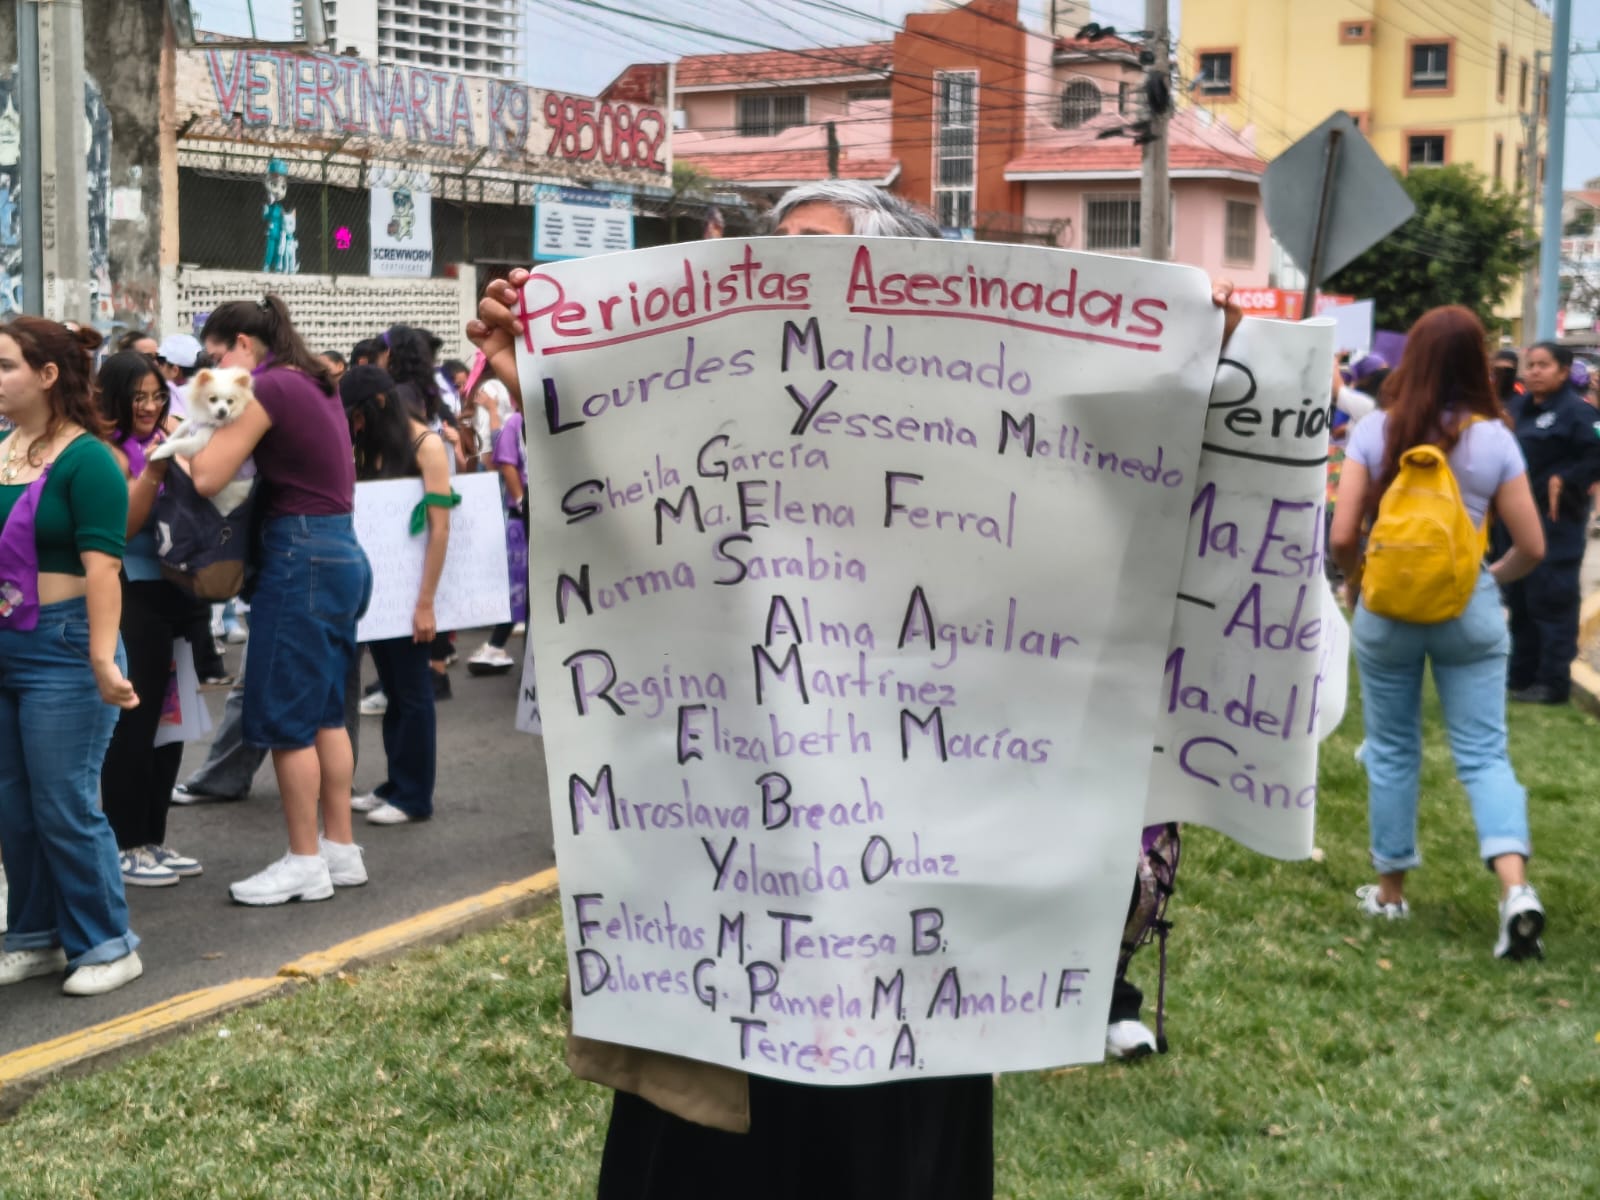 VETERINARIA K9
9850862
SCREWWORM
CERTIFICATE
ACOS
Periodistas Asesinadas
Lourdes Maldonado
Yessenia Mollinedo
Sheila García
Ma. Elena Ferral
Norma Sarabia
Alma Aguilar
Regina Martínez
Elizabeth Macías
Miroslava Breach
Yolanda Ordaz
Felicitas M. Teresa B.
Dolores G. Pamela M. Anabel F.
Teresa A.
Perio
Ma. Est
- Ade
Ma. del
- Cánd